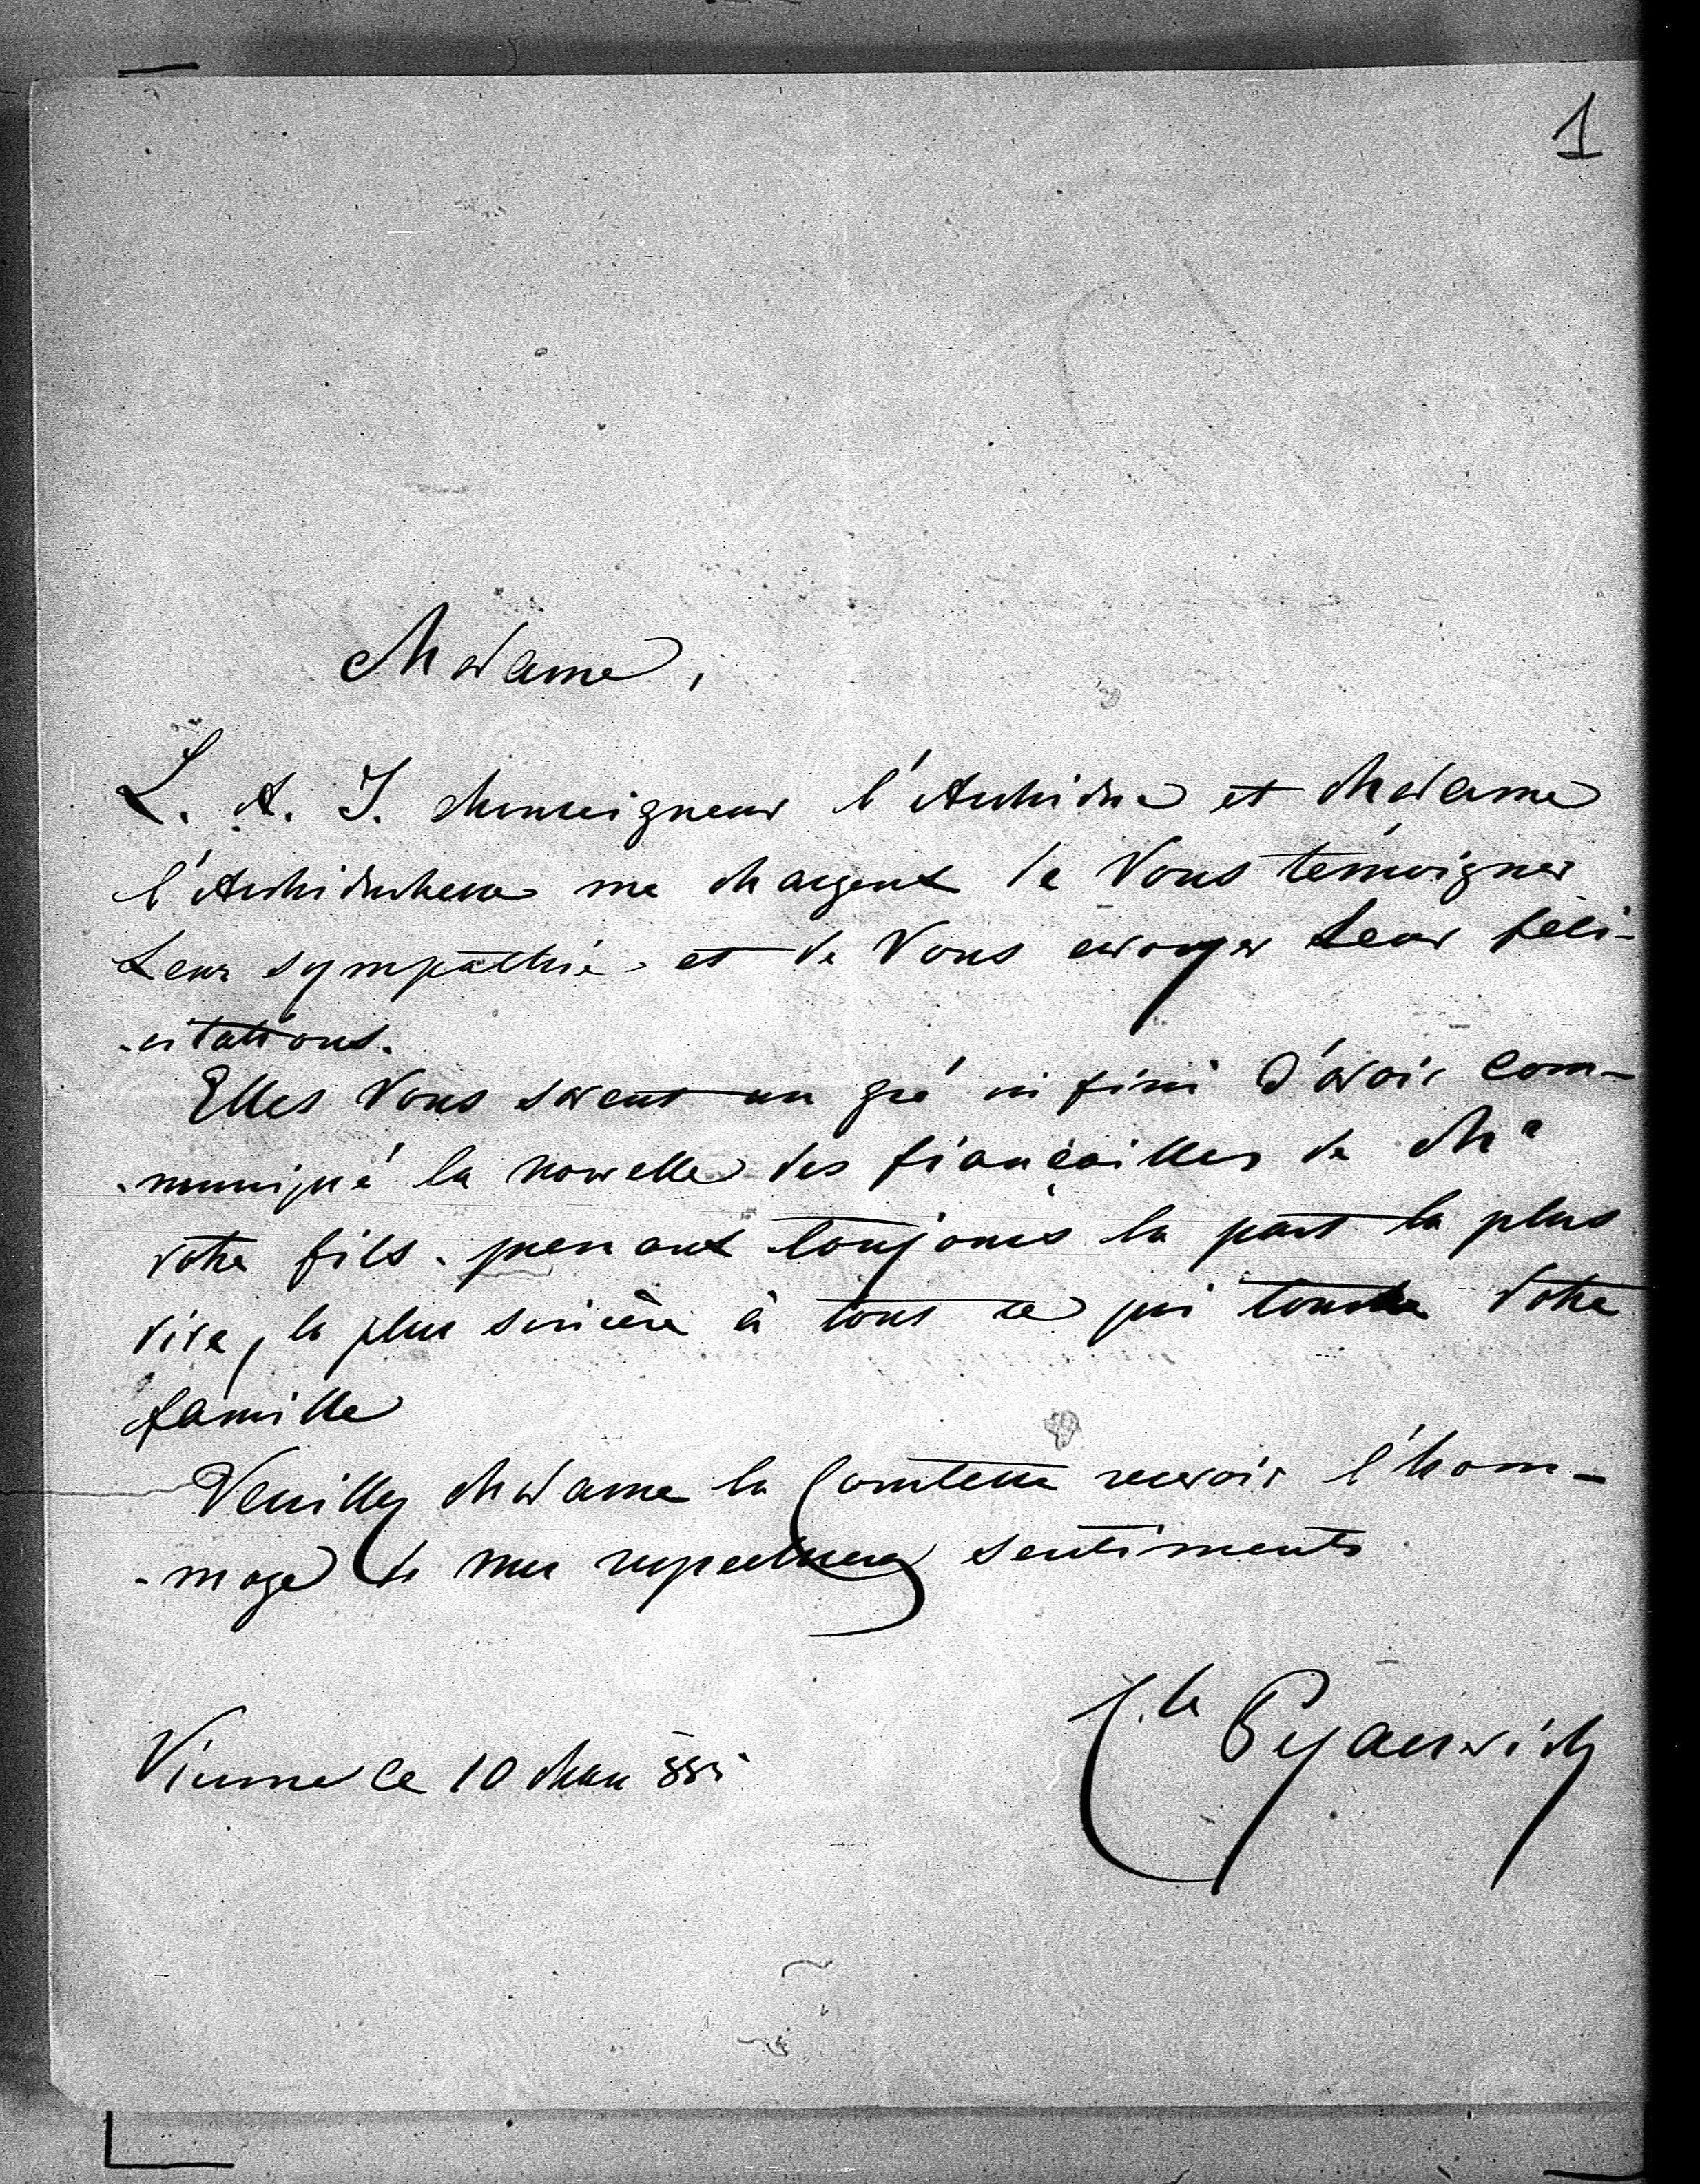 1
Madame,
L. A. I. Monseigneur l'Archiduc et Madame
l'Archiduchesse me chargent de Vous témoigner
Leur sympathie et de Vous envoyer Leur féli-
-citations.
Elles Vous savent un gré infini d'avoir com-
-muniqué la nouvelle des fiançailles de Mr
votre fils. prenant toujours la part la plus
vive, la plus sincère à tout ce qui touche Votre
famille
Veuillez Madame la Comtesse recevoir l'hom-
-mage de mes respectueux sentiments
Vienne ce 10 Mars
Cte